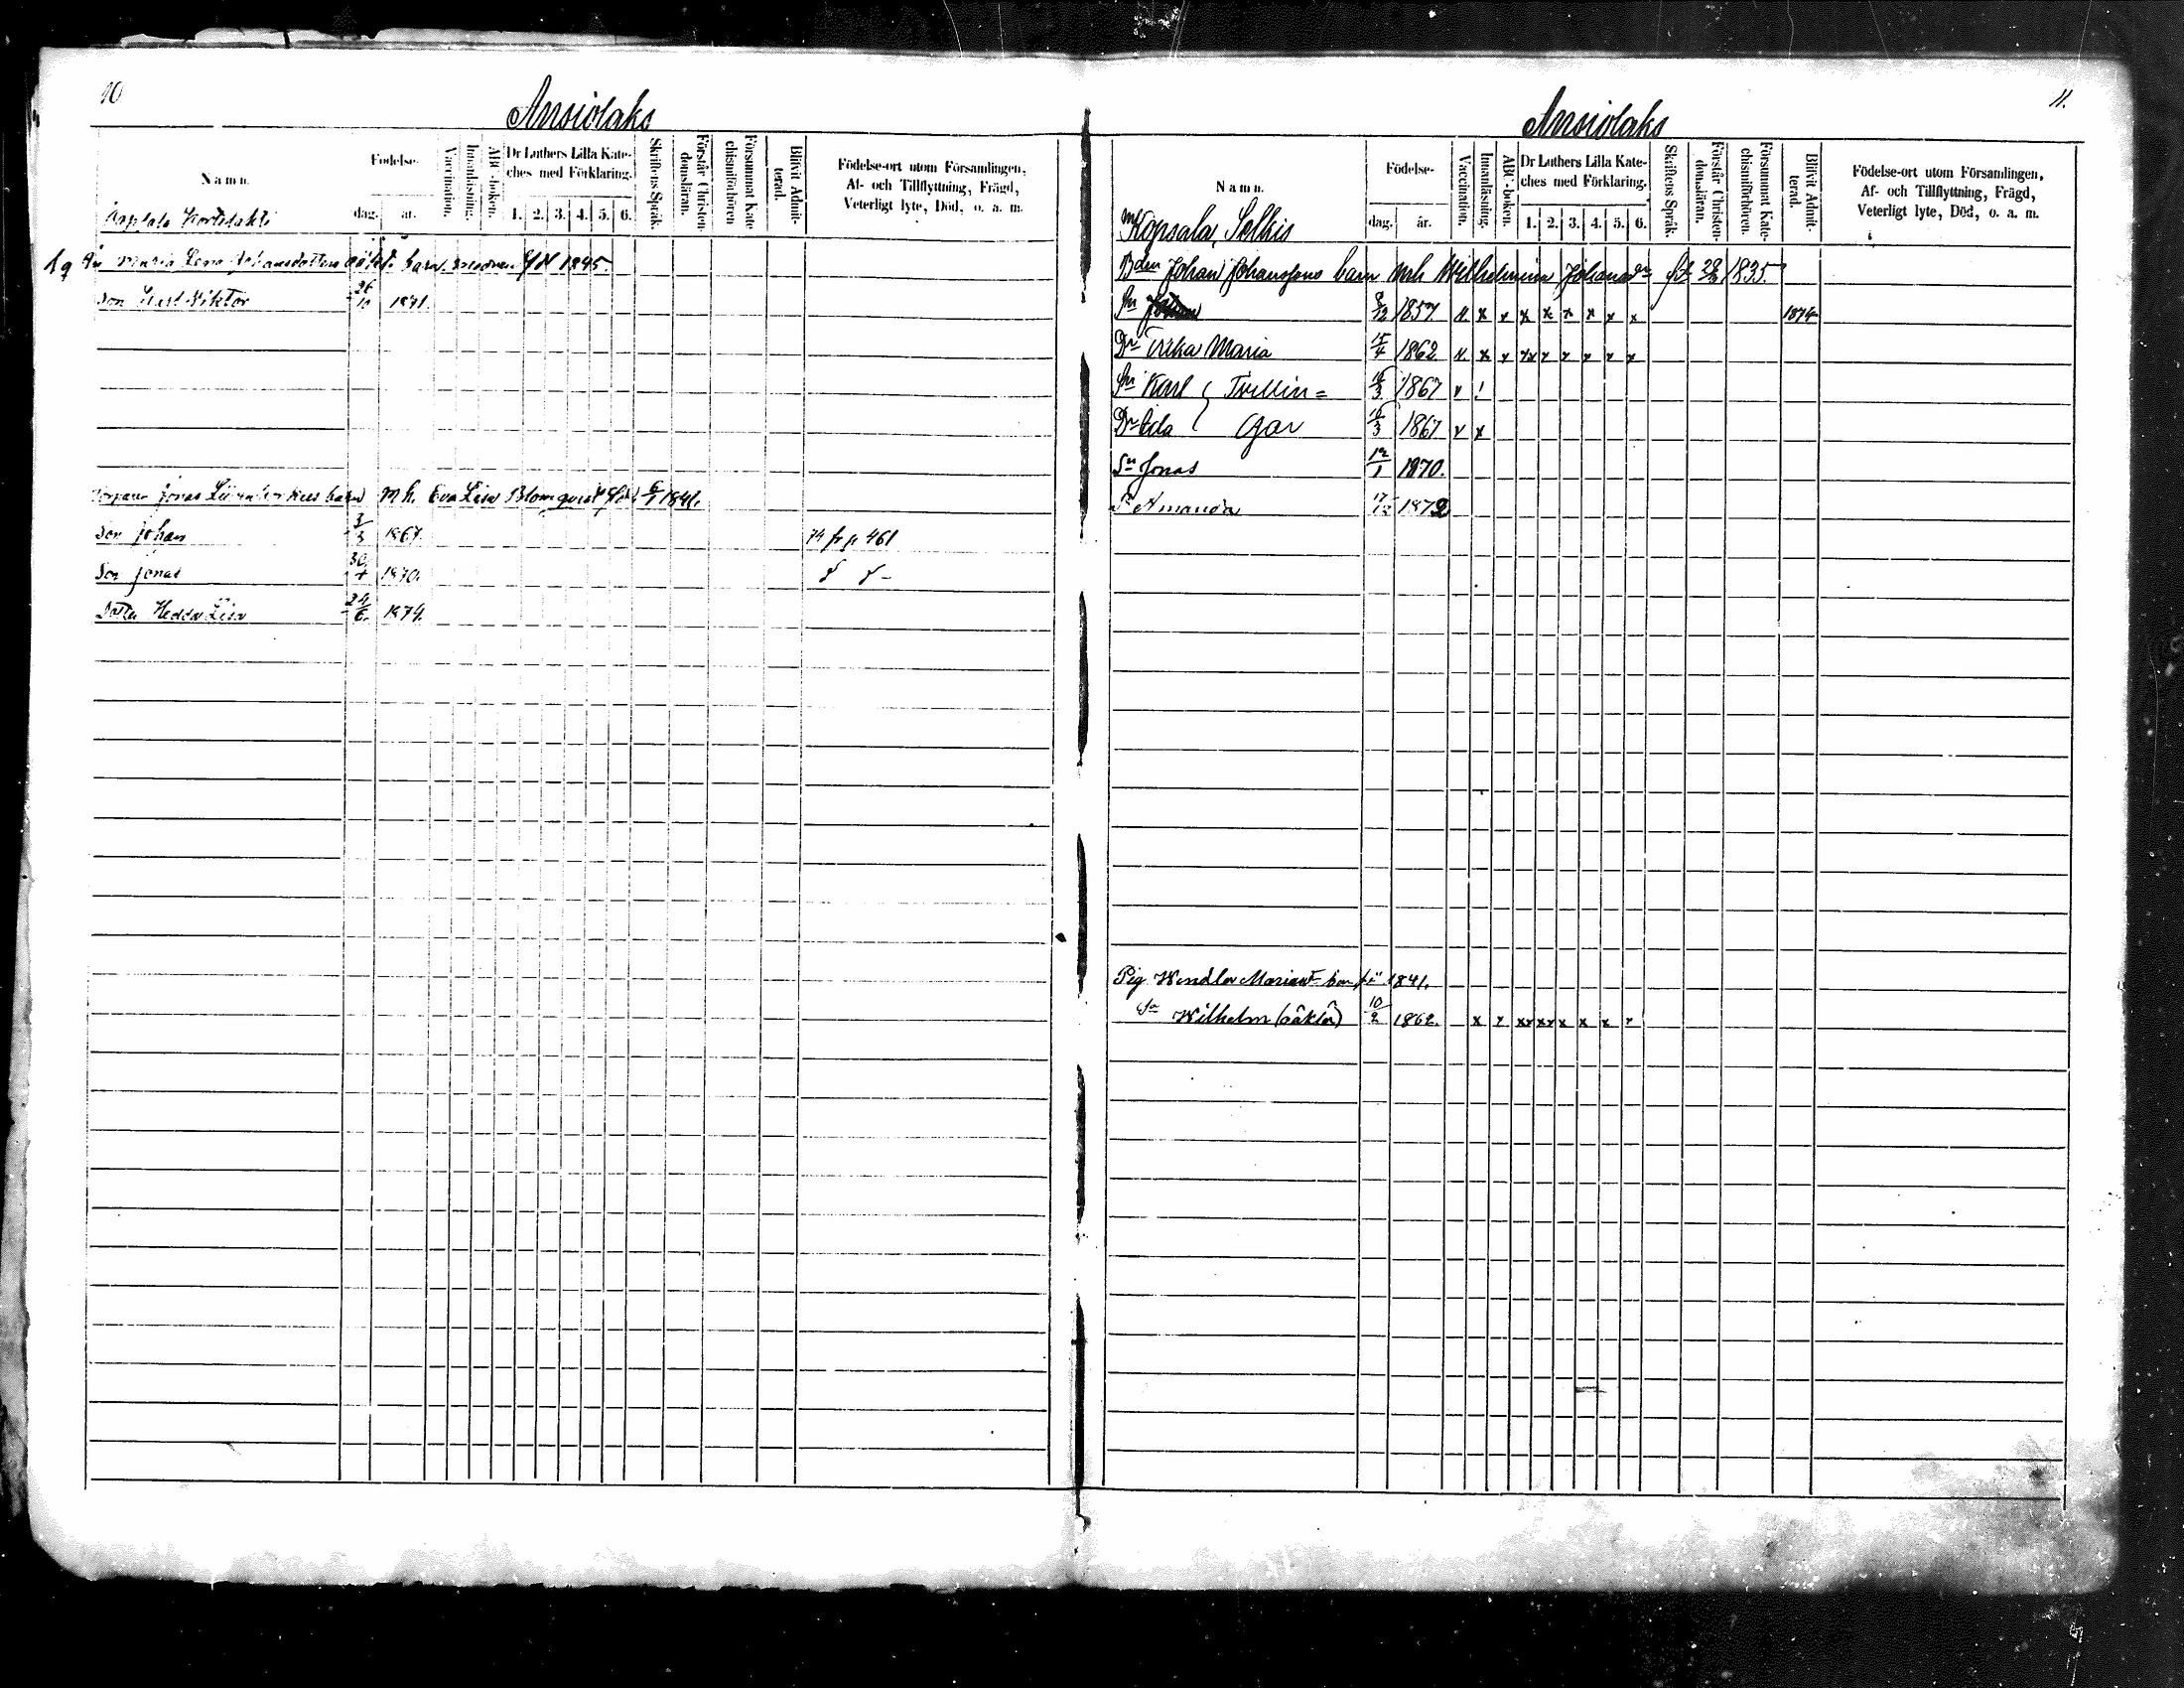 10
Ansiolaks
Namn.
Födelse-
dag. år.
Vaccination.
Innanläsning.
ABC-boken.
Dr Luthers Lilla Kate-
ches med Förklaring.
1. 2. 3. 4. 5. 6.
Skriftens Språk.
Förstår Christen-
domsläran.
Försummat Kate-
chismiförhören
Blifvit Admit-
terad.
Födelse-ort utom Församlingen,
Af- och Tillflyttning, Frägd,
Veterligt lyte, Död, o. a. m.
Maria Lena Johansdotters oäkta barn 1845.
Son Karl Viktor 26/10 1871.
Jonas barn m h. Eva Lisa Blomqvist 6/1 1841.
Son Johan 3/3 1867. 74 fr p 461
Son Jonas 30/ 1870.
Dotter Hedda Lisa 24/6. 1874.
11.
Ansiolaks
Namn.
Födelse-
dag. år.
Vaccination.
Innanläsning.
ABC-boken.
Dr Luthers Lilla Kate-
ches med Förklaring.
1. 2. 3. 4. 5. 6.
Skriftens Språk.
Förstår Christen-
domsläran.
Försummat Kate-
chismiförhören.
Blifvit Admit-
terad.
Födelse-ort utom Församlingen,
Af- och Tillflyttning, Frägd,
Veterligt lyte, Död, o. a. m.
Kopsala, Selkis
Bdn Johan Johanssons barn mh Wilhelmina Johansdr 1835.
Sn Johan /12 1857. x x x x x x x x 1874
Dr Ulrika Maria 15/4 1862 x x x x x x x
Sn Karl Tvillin= 16/3 1867 x !
Dr Ida gar 16/3 1867 x x
Sn Jonas 12/1 1870.
Dr Amanda 17/12 1872
Pig Wendla Maria 1841.
Sn Wilhelm (oäkta) 10/2 1862. x x xx xx x x x x